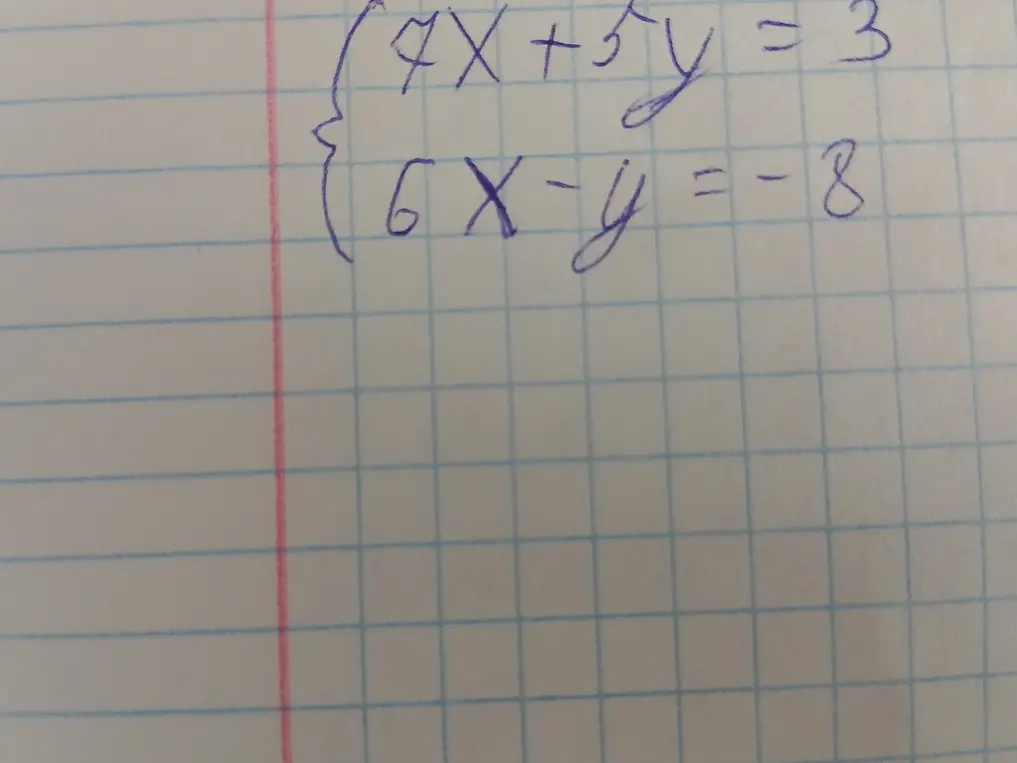 7x + 5y = 3
6x - y = - 8